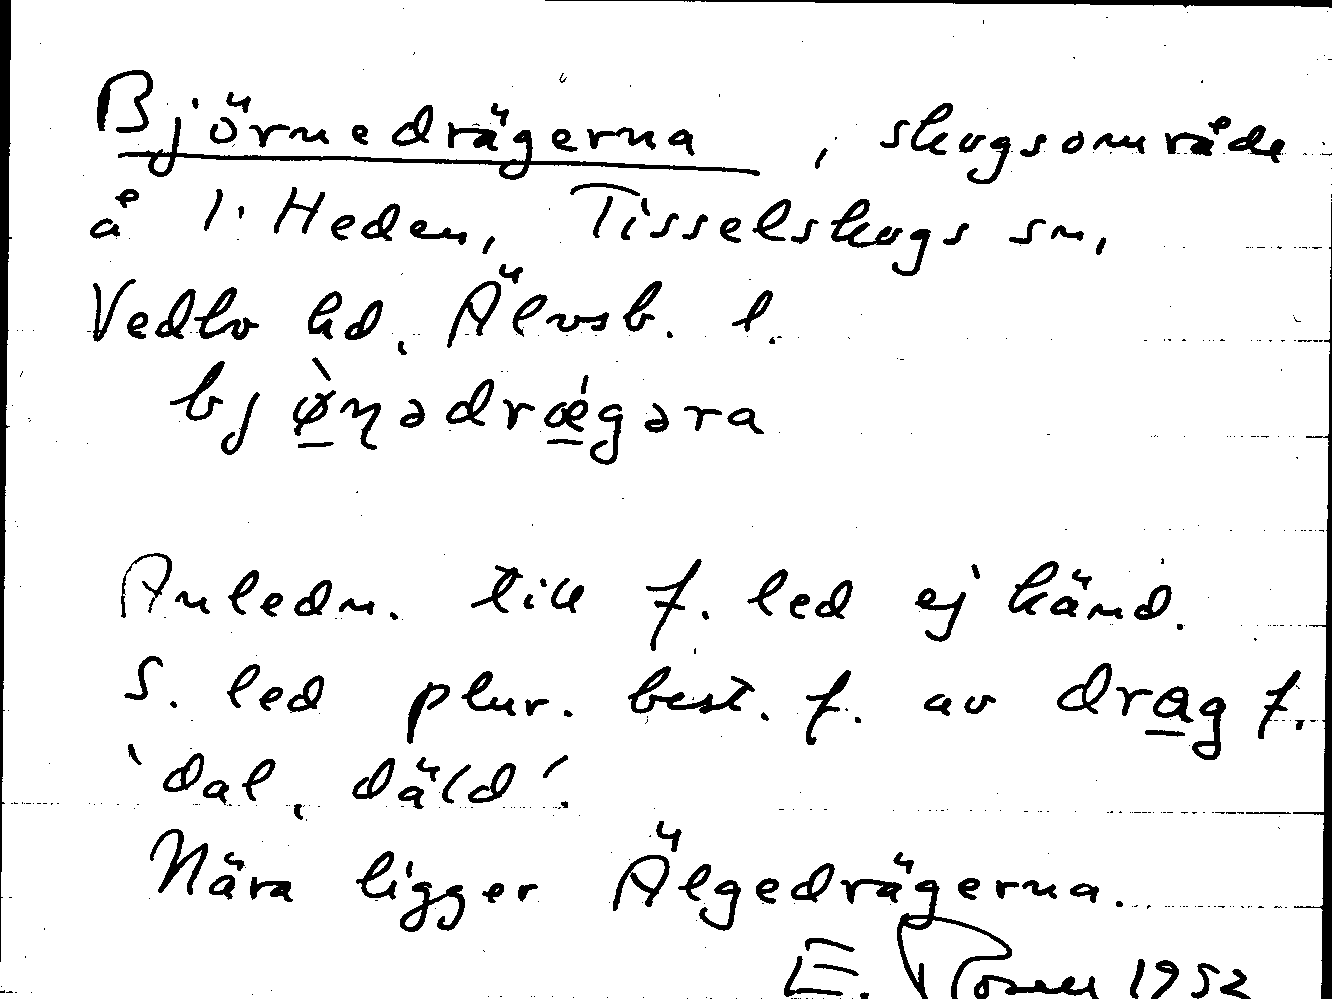 Björnedrägerna, skogsområde
å 1. Heden, Tisselskogs sn,
Vedbo hd, Älvsb. l.
bjø̀ṇədrǽgəra
Anledn. till f. led ej känd.
S. led plur. best. f. av drag f.
'dal, däld'.
Nära ligger Älgedrägerna.
E. Rosell 1952